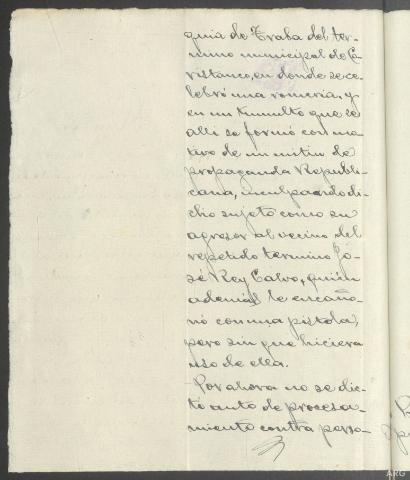 quia de Traba del ter-
mino municipal de Co-
ristanco, en donde se ce-
lebró una romeria, y
en un tumulto que
alli se formó con mo-
tivo de un mitin de
propaganda Republi-
cana, inculpando di-
cho sujeto como su
agresor al vecino del
repetido termino Jo-
sé Rey Calvo, quien
ademas le encaño-
nó con una pistola,
pero sin que hiciera
uso de ella.
Por ahora no se dic-
tó auto de procesa-
miento contra perso-
ARG